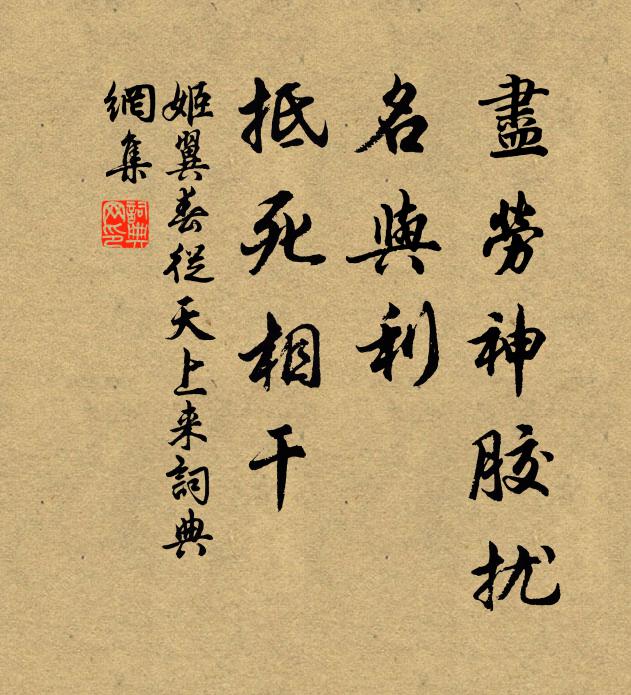 盡勞神膠扰
名與利
抵死相干
姬翼春從天上来詞典
網集
詞典
网印